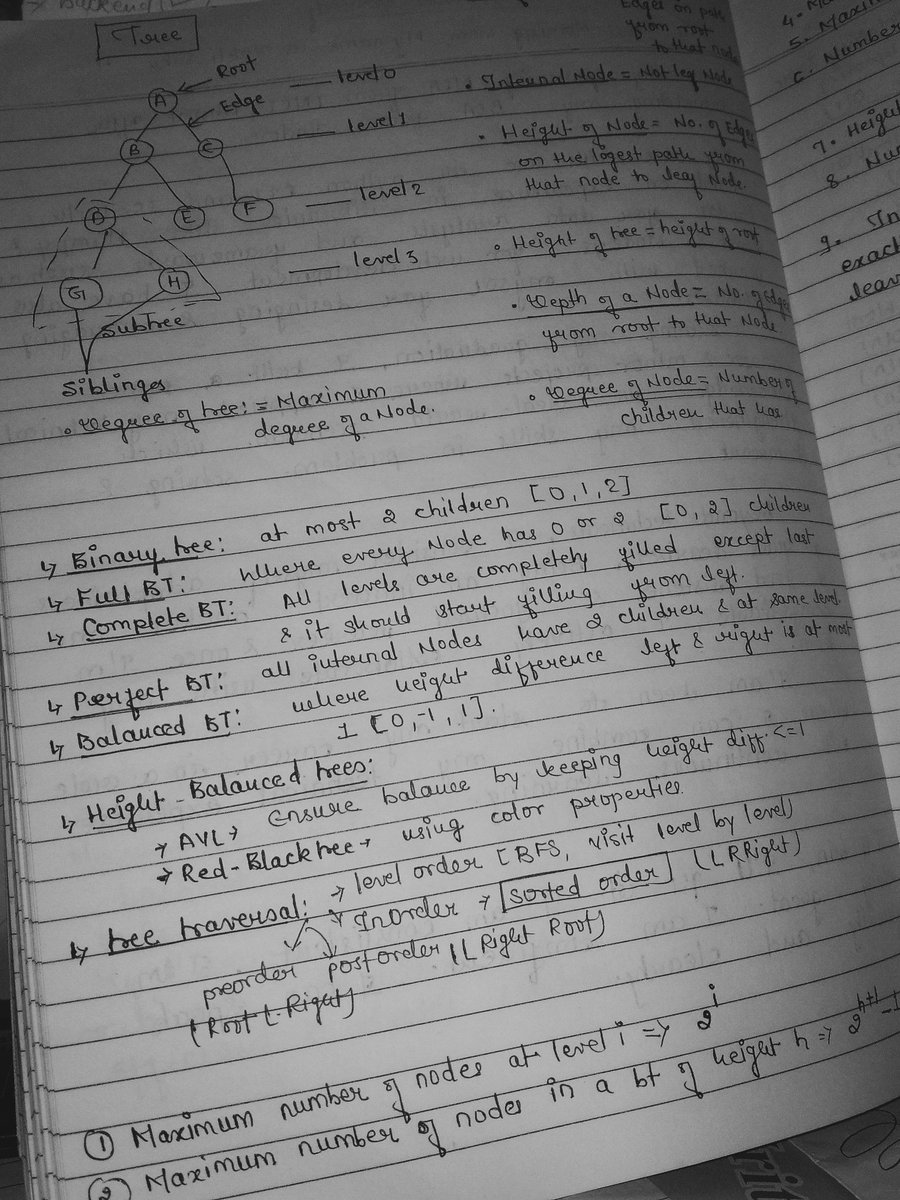 Backend
Tree
Root
level 0
A
Edge
level 1
B
C
level 2
D
E
F
level 3
G
H
Subtree
Siblinges
• Degree of tree: = Maximum
degree of a Node.
Edges on path
from root
to that node
• Internal Node = Not leaf Node
• Height of Node = No. of Edges
on the logest path from
that node to leaf Node.
• Height of tree = height of root
• Depth of a Node = No. of Edges
from root to that Node
• Degree of Node = Number of
children that has
↳ Binary tree: at most 2 children [0, 1, 2]
↳ Full BT: Where every Node has 0 or 2 [0, 2] children
↳ Complete BT: All levels are completely filled except last
& it should start filling from left.
↳ Perfect BT: all internal Nodes have 2 children & at same level.
↳ Balanced BT: where height difference left & right is at most
1 [0, -1, 1].
↳ Height-Balanced trees:
→ AVL → Ensure balance by keeping height diff. <=1
→ Red-Black tree → using color properties.
↳ tree traversal: → level order [BFS, visit level by level)
→ Inorder → [sorted order] (L R Right)
preorder postorder (L Right Root)
(Root L Right)
① Maximum number of nodes at level i => 2^i
② Maximum number of nodes in a bt of height h => 2^h+1 - 1
5. Maxi
6. Number
7. Height
8. Nu
9. In
exact
leave